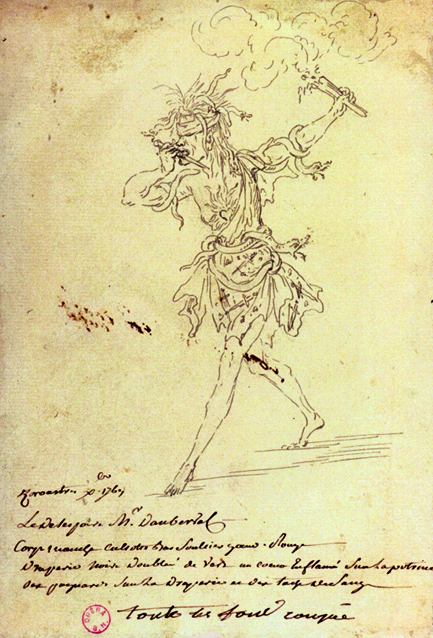 Zoroastre 1769
Le Desespoir Mr Dauberval
Corps manche culottes Bas Souliers jaune Rouge
Draperie noir Doublé de Verd un coeur Enflamé Sur La poitrine
Des poignard Sur La Draperie et des tach de Sang
toute les
OPERA B.N.